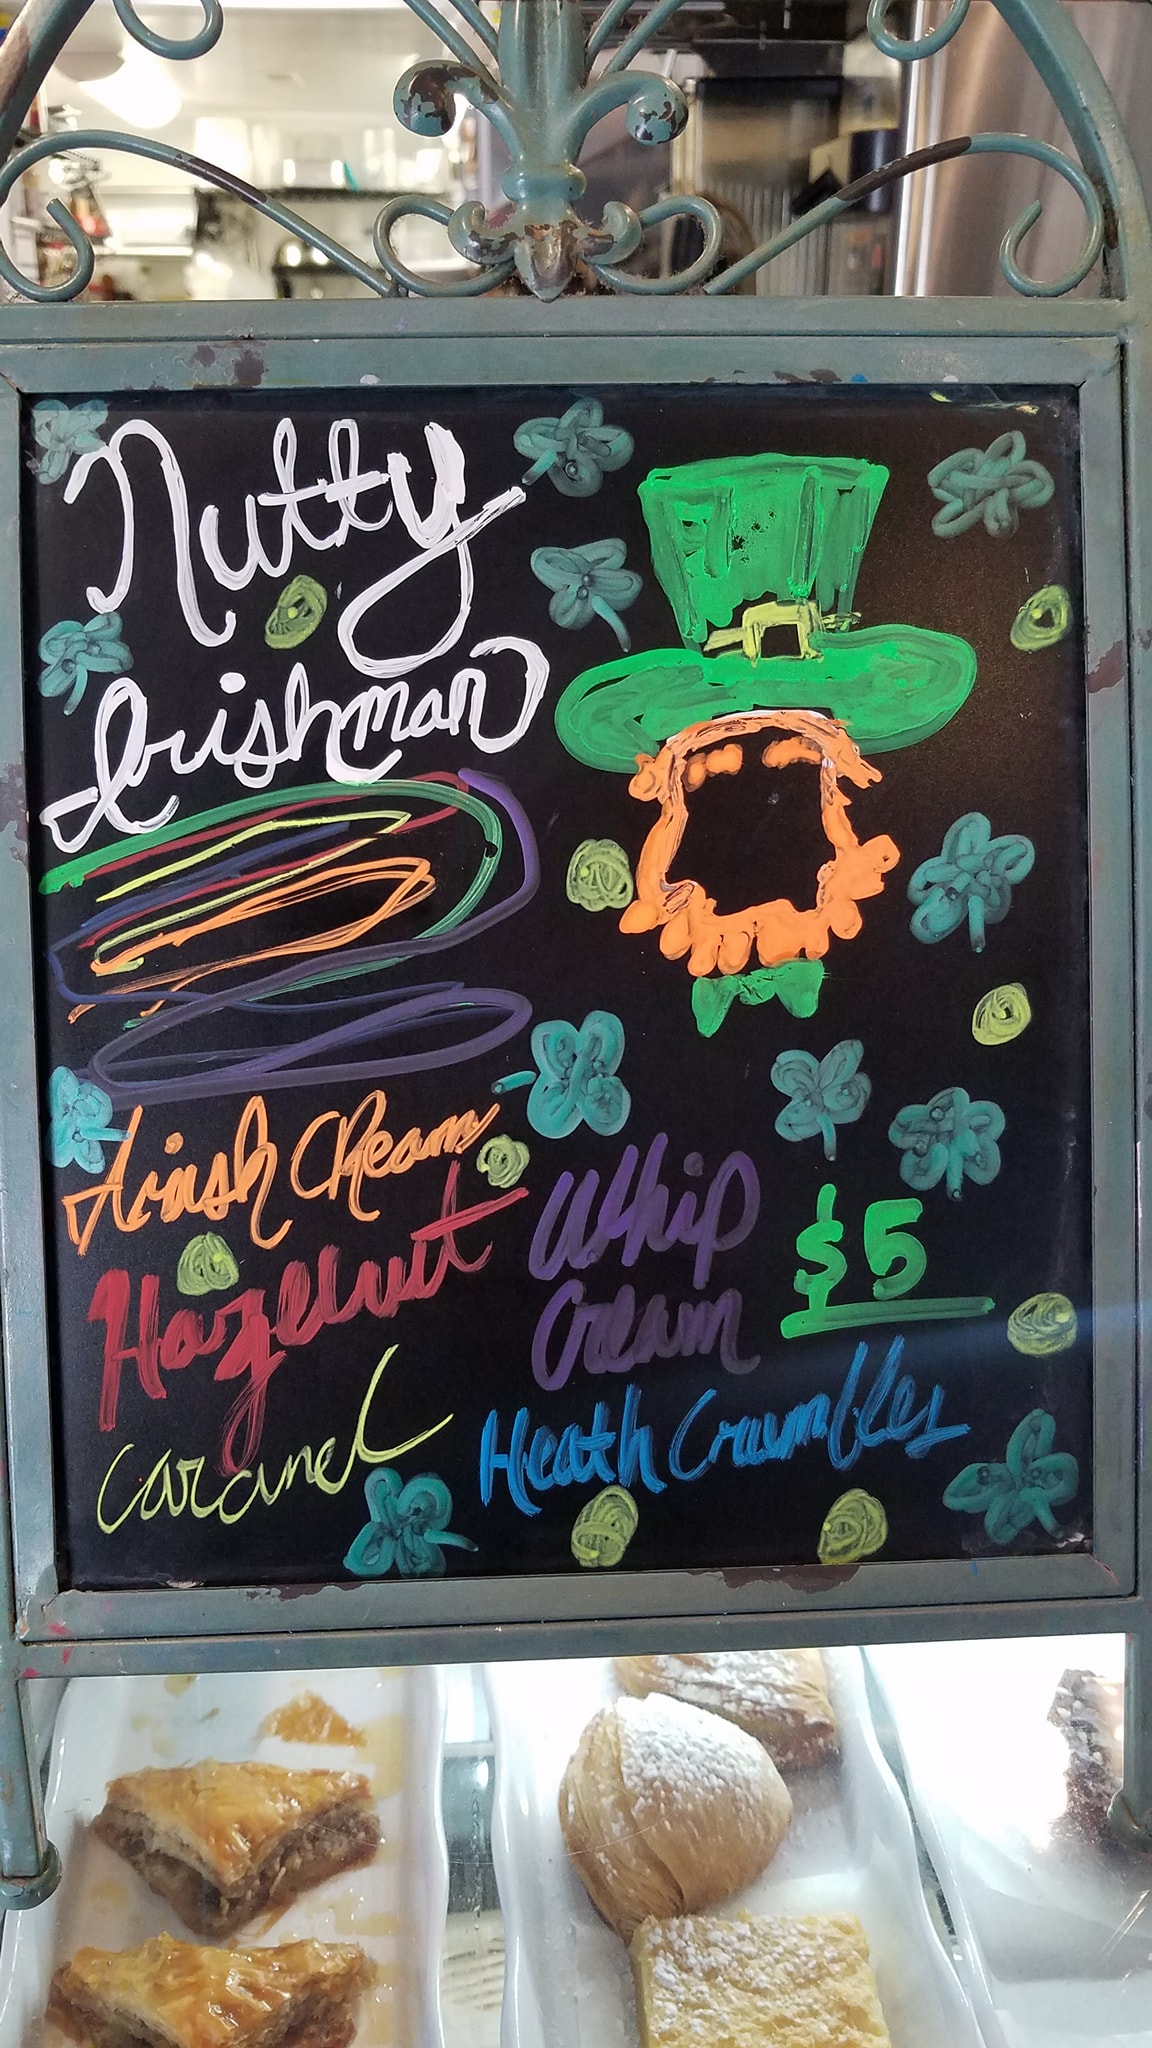 Nutty
Irishman
Irish Cream
Hazelnut
Caramel
Whip
Cream
$5
Heath Crumbles